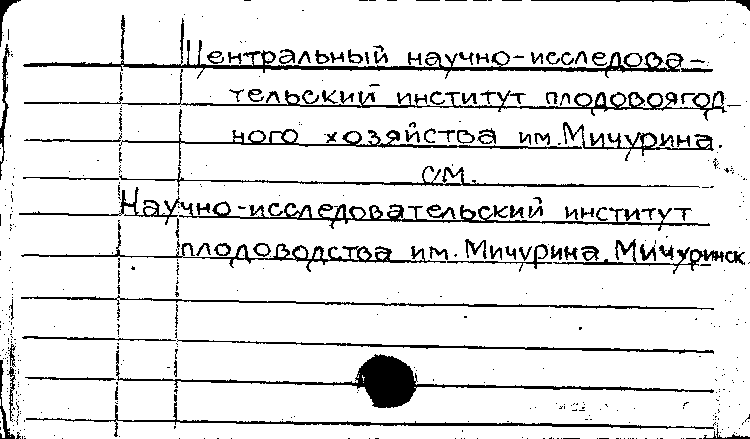 Центральный научно-исследова-
тельский институт плодовоягод
ного хозяйства им. Мичурина.
см.
Научно-исследовательский институт
плодоводства им. Мичурина. Мичуринск